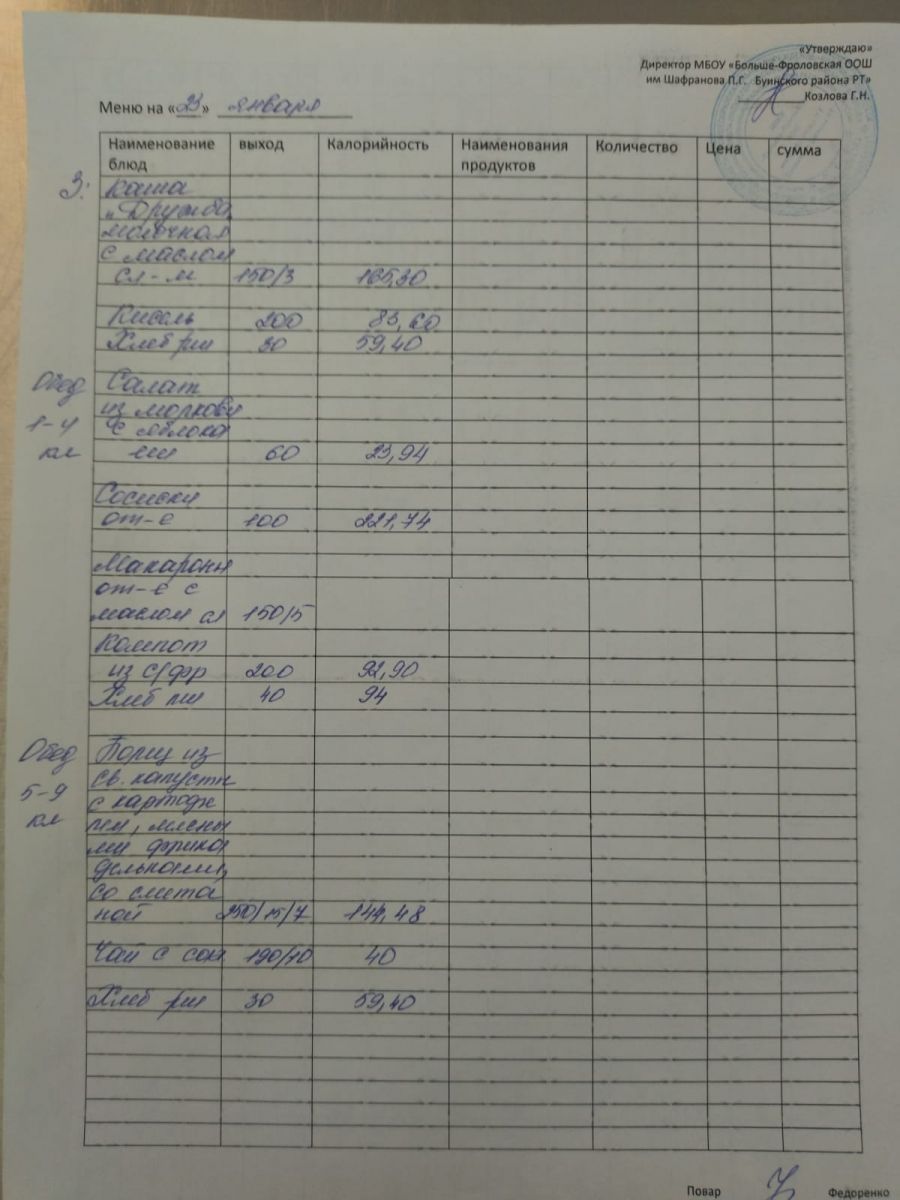 «Утверждаю»
Директор МБОУ «Больше-Фроловская ООШ
им Шафранова П.Г. Буинского района РТ»
Козлова Г.Н.
Меню на «23» января
Наименование блюд выход Калорийность Наименования продуктов Количество Цена сумма
З: Каша
"Дружба,
молочная
с маслом
сл-м 150/3 165,30
Кисель 200 83,60
Хлеб рж 30 59,40
Обед Салат
1-4 из моркови
кл с яблока
ми 60 23,94
Сосиски
от-е 100 221,74
Макароны
от-е с
маслом сл 150/5
Компот
из с/фр 200 92,90
Хлеб пш 40 94
Обед Борщ из
5-9 св. капусты
кл с картофе
лем, мясны
ми фрика
дельками,
со смета
ной 250/15/7 144,48
Чай с сах 190/10 40
Хлеб рж 30 59,40
Повар Федоренко